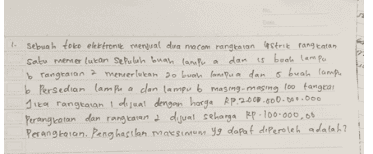 1. Sebuah toko elektronik menjual dua macam rangkaian listrik rangkaian
satu memerlukan sepuluh buah lampu a dan 15 buah lampu
b rangkaian 2 memerlukan 20 buah lampu a dan 5 buah lampu
b Persedian lampu a dan lampu b masing-masing 100 tangkai
Jika rangkaian 1 dijual dengan harga RP.
Perangkaian dan rangkaian 2 dijual seharga RP.100.000,00
Perangkaian. Penghasilan maksimum yg dapat diperoleh adalah?